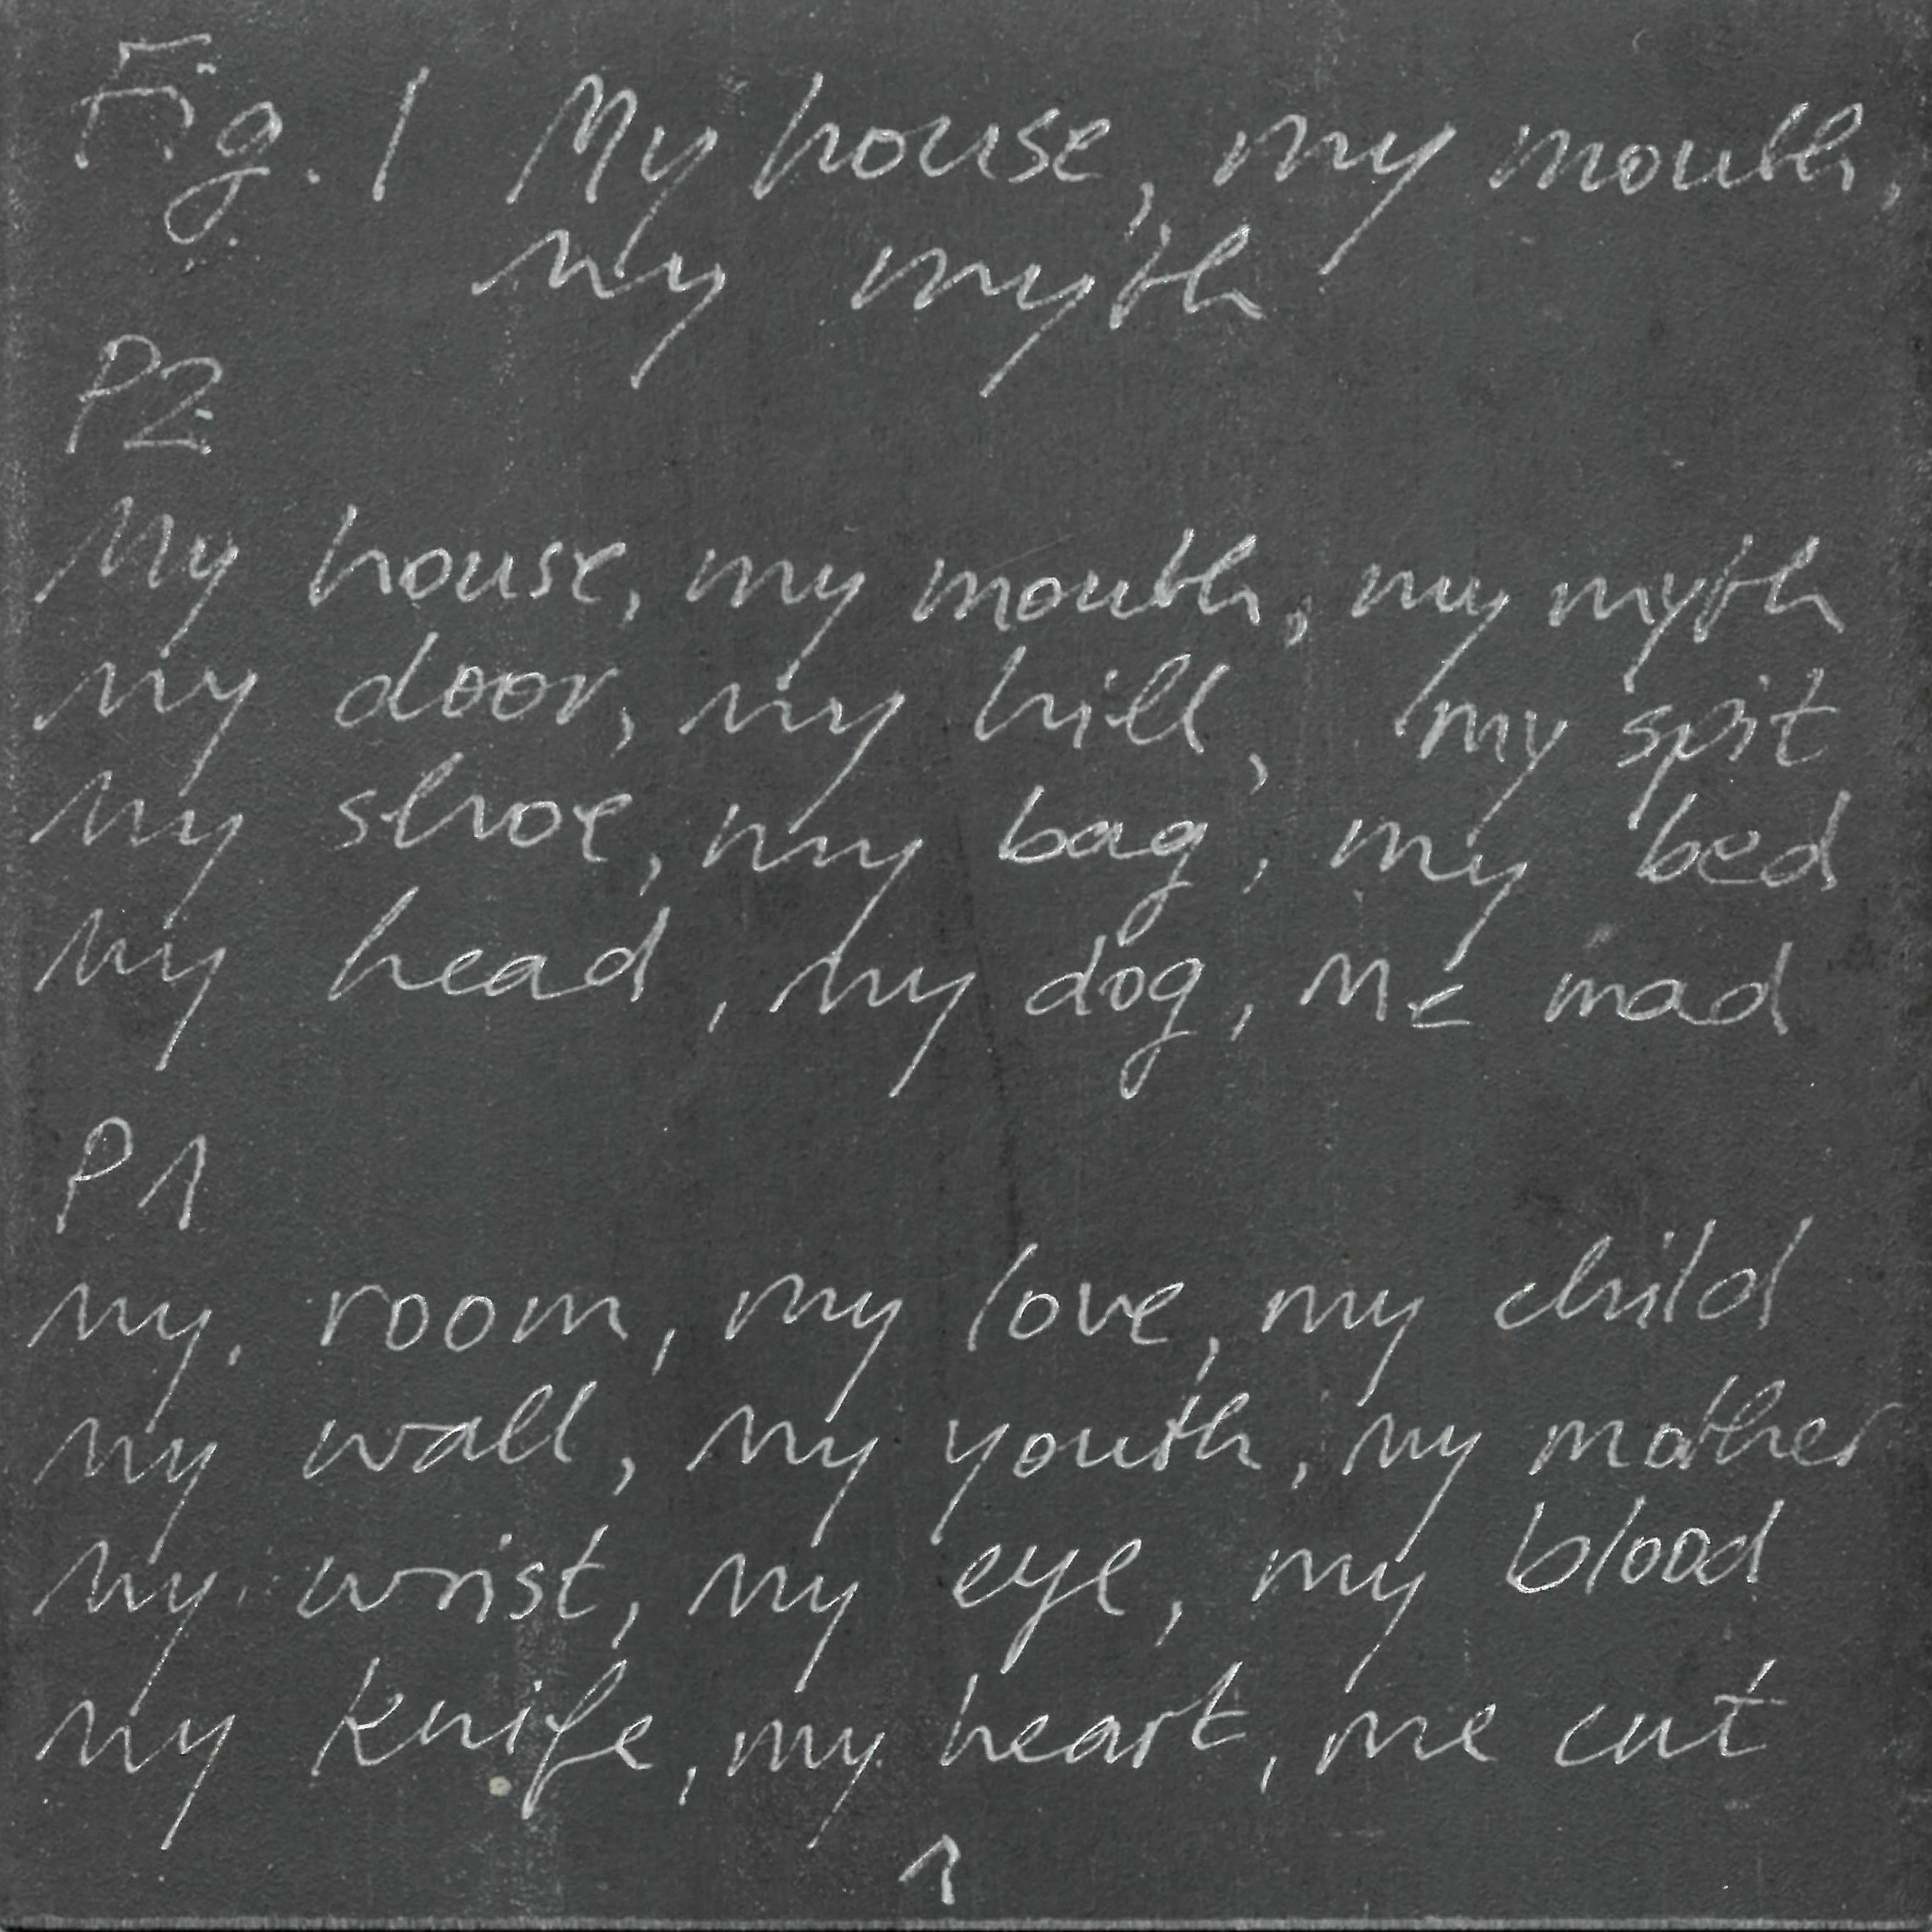 Fig. 1 My house, my mouth,
my myth
P2
My house, my mouth, my myth
my door, my hill, my spit
my shoe, my bag, my bed
my head, my dog, me mad
P1
my, room, my love, my child
my wall, my youth, my mother
my wrist, my eye, my blood
my knife, my heart, me cut
1